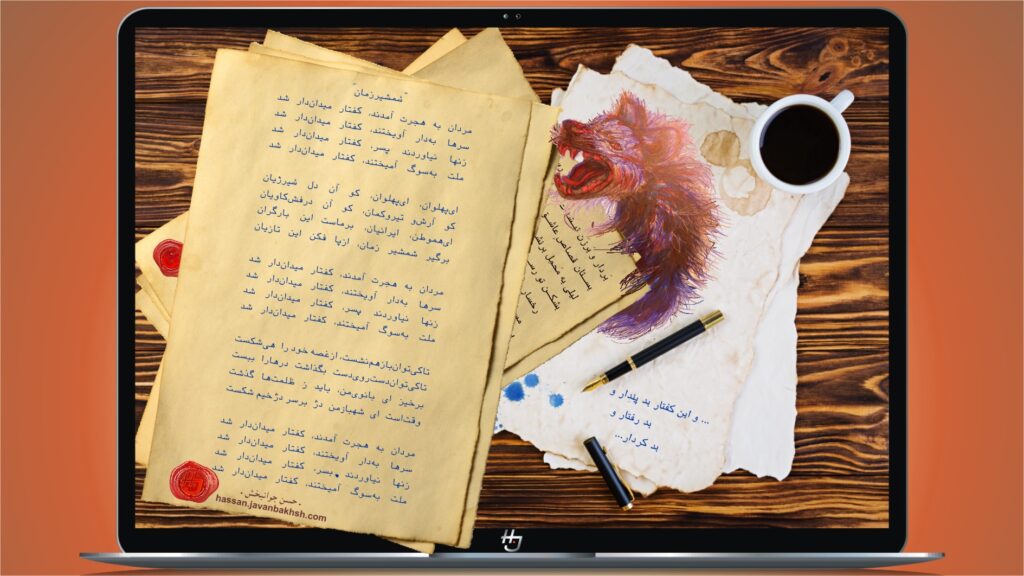 "شمشیرزمان"
مردان به هجرت آمدند، کفتار میدان‌دار شد
سرها به‌دار آویختند، کفتار میدان‌دار شد
زنها نیاوردند پسر، کفتار میدان‌دار شد
ملت به‌سوگ آمیختند، کفتار میدان‌دار شد
ای‌پهلوان، ای‌پهلوان، کو آن دل شیرژیان
کو آرش‌و تیروکمان، کو آن درفش‌کاویان
ای‌هموطن، ایرانیان، برماست این بارگران
برگیر شمشیر زمان، ازپا فکن این تازیان
مردان به هجرت آمدند، کفتار میدان‌دار شد
سرها به‌دار آویختند، کفتار میدان‌دار شد
زنها نیاوردند پسر، کفتار میدان‌دار شد
ملت به‌سوگ آمیختند، کفتار میدان‌دار شد
تاکی‌توان‌بازهم‌نشست، ازغصه خود را هی‌شکست
تاکی‌توان‌دست‌روی‌دست بگذاشت درهارا ببست
برخیز ای بانوی‌من، باید ز ظلمت‌ها گذشت
وقت‌است ای شهبازمن دژ برسر دژخیم شکست
مردان به هجرت آمدند، کفتار میدان‌دار شد
سرها به‌دار آویختند، کفتار میدان‌دار شد
زنها نیاوردند پسر، کفتار میدان‌دار شد
ملت به‌سوگ آمیختند، کفتار میدان‌دار شد
. حسن جوانبخش .
hassan.javanbakhsh.com
... و این کفتار بد پندار و
بد رفتار و
بد کردار...
HJ